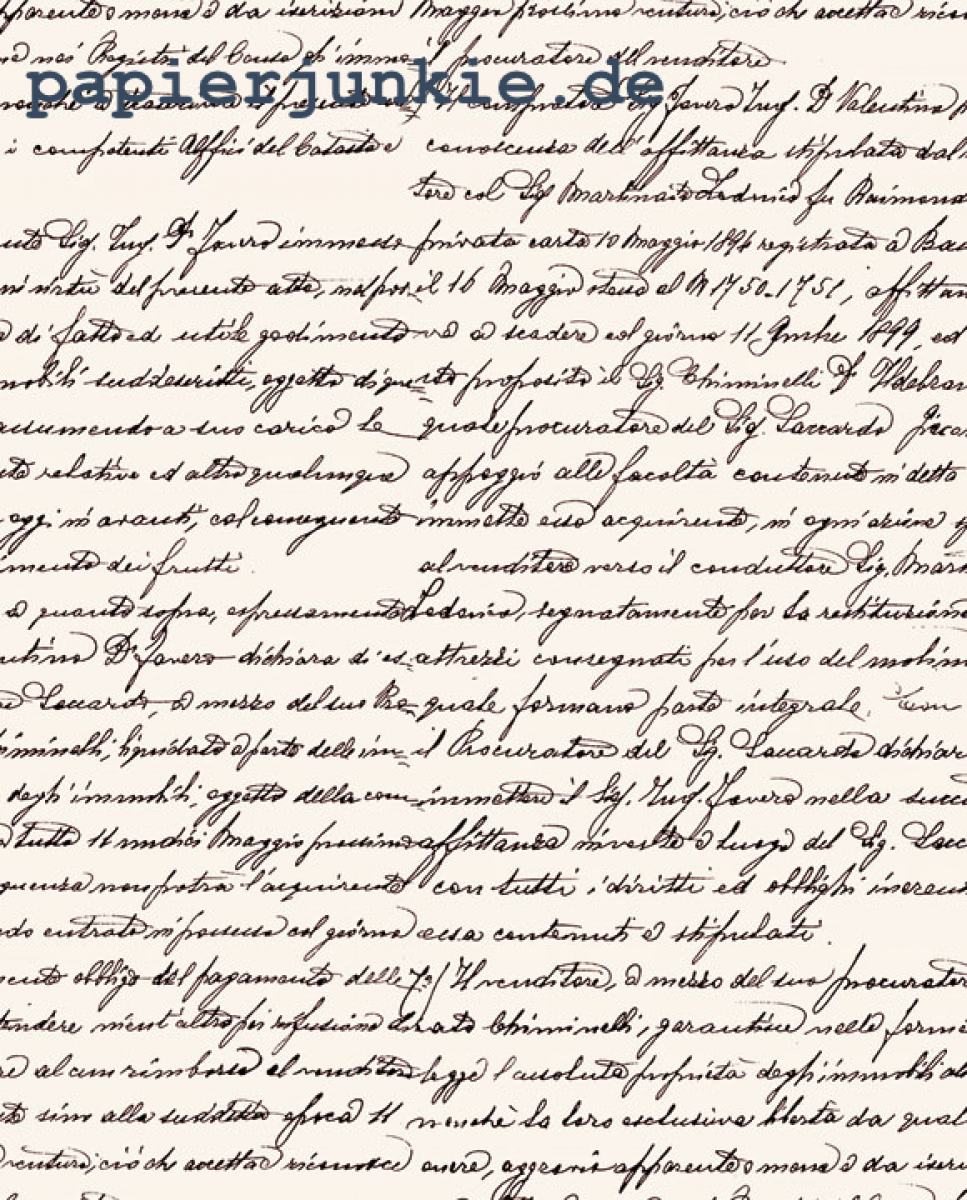 apparente o meno e da iscrizioni Maggio prossimo venturo, ciò che accetta e ricon
nei Registri del Censo gl'immo= il procuratore del venditore
papierjunkie.de
nonchè a il presente Il compratore Sig Favero Ing. Dr Valentino
i competenti Uffici del Catasto e conoscenza dell'affittanza stipulata dal
tore col Sig Martinato Lodovico fu Raimondo
Sig. Ing. Dr Favero immesso privata carta 10 Maggio 1894 registrata a Bas
in virtù del presente atto, nel pos= il 16 Maggio stesso al N 1750-1751, affittan
di fatto ed utile godimento va a scadere col giorno 11 9mbre 1899, ed
mobili suddescritti, oggetto di que= sto proposito il Sig. Chiminelli Dr Ildebran
assumendo a suo carico le quale procuratore del Sig. Saccardo
relative ed altro qualunque appoggio alle facoltà contenute in detta
oggi in avanti, col conseguente immette esso acquirente, in ogni azione
imento dei frutti al venditore verso il conduttore Sig. Mar
a quanto sopra, espressamente Lodovico, segnatamente per la restituzione
entino Dr Favero dichiara di es= attrezzi consegnati per l'uso del molin
Saccardo, a mezzo del suo Pro= quale formano parte integrale. Con
himinelli, liquidato a parte delle im= il Procuratore del Sig. Saccardo dichiar
degl'immobili, oggetto della com= immettere il Sig. Ing. Favero nella succ
a tutto 11 undici Maggio prossimo affittanza investito a luogo del Sig. Sacc
guenza non potrà l'acquirente con tutti i diritti ed obblighi inerenti
ndo entrato in possesso col giorno essa contenuti e stipulati.
obbligo del pagamento delle 7o/ Il venditore, a mezzo del suo procurator
tendere nient'altro per rifusione Chiminelli, garantisce nelle forme
re alcun rimborso al venditore legge l'assoluta proprietà degl'immobili
sino alla suddetta epoca 11 nonchè la loro esclusiva libertà da qual
venturo, ciò che accetta e riconosce onere, aggravio apparente o meno e da iscri